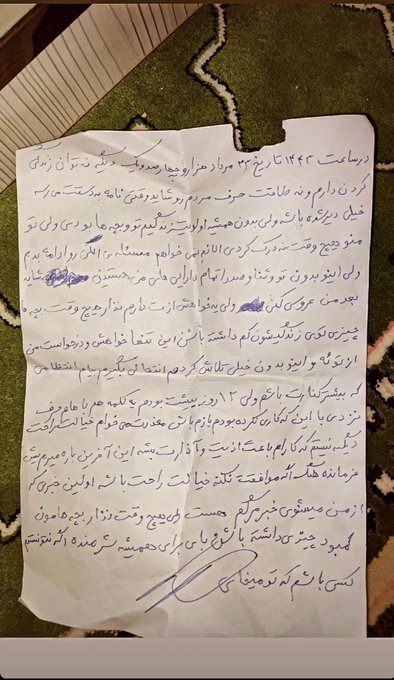 در ساعت ۱۴۴۳ تاریخ ۲۳ مرداد هزار و چهارصد و یک دیگه نه توان زندگی
کردن دارم و نه طاقت حرف مردم رو شاید وقتی نامه به دستت می رسه
خیلی دیر شده باشه ولی بدون همیشه اولویت زندگیم تو و بچه ها بودی ولی تو
منو هیچ وقت نه درک کردی الا نم نمی خواهم مسئله ی الکی رو ادامه بدم
ولی اینو بدون تو و ثنا و صدرا تمام دارایی مالی من هستین شاید
بعد من عروسی کنی ولی یه خواهش ازت دارم نذار هیچ وقت بچه ها
چیزی توی زندگیشون کم داشته باشن این تنها خواهش و درخواست من
از توئه و اینو بدون خیلی تلاش کردم انتقالی بگیرم بیام انتظامی
که بیشتر کنارت باشم ولی ۱۲ روز پیشت بودم یه کلمه هم باهام حرف
نزدی با این که کاری نکرده بودم بازم باش معذرت می خوام خیالت راحت
دیگه نیستم که کارام باعث اذیت و آزارت بشه این آخرین باره میرم پیش
فرمانده هنگ اگه موافقت نکنه خیالت راحت باشه اولین خبری که
از من میشنوی خبر مرگم هست ولی هیچ وقت نذار بچه هامون
کمبود چیزی داشته باشن بای برای همیشه شرمنده اگه نتونستم
کسی باشم که تو میخای